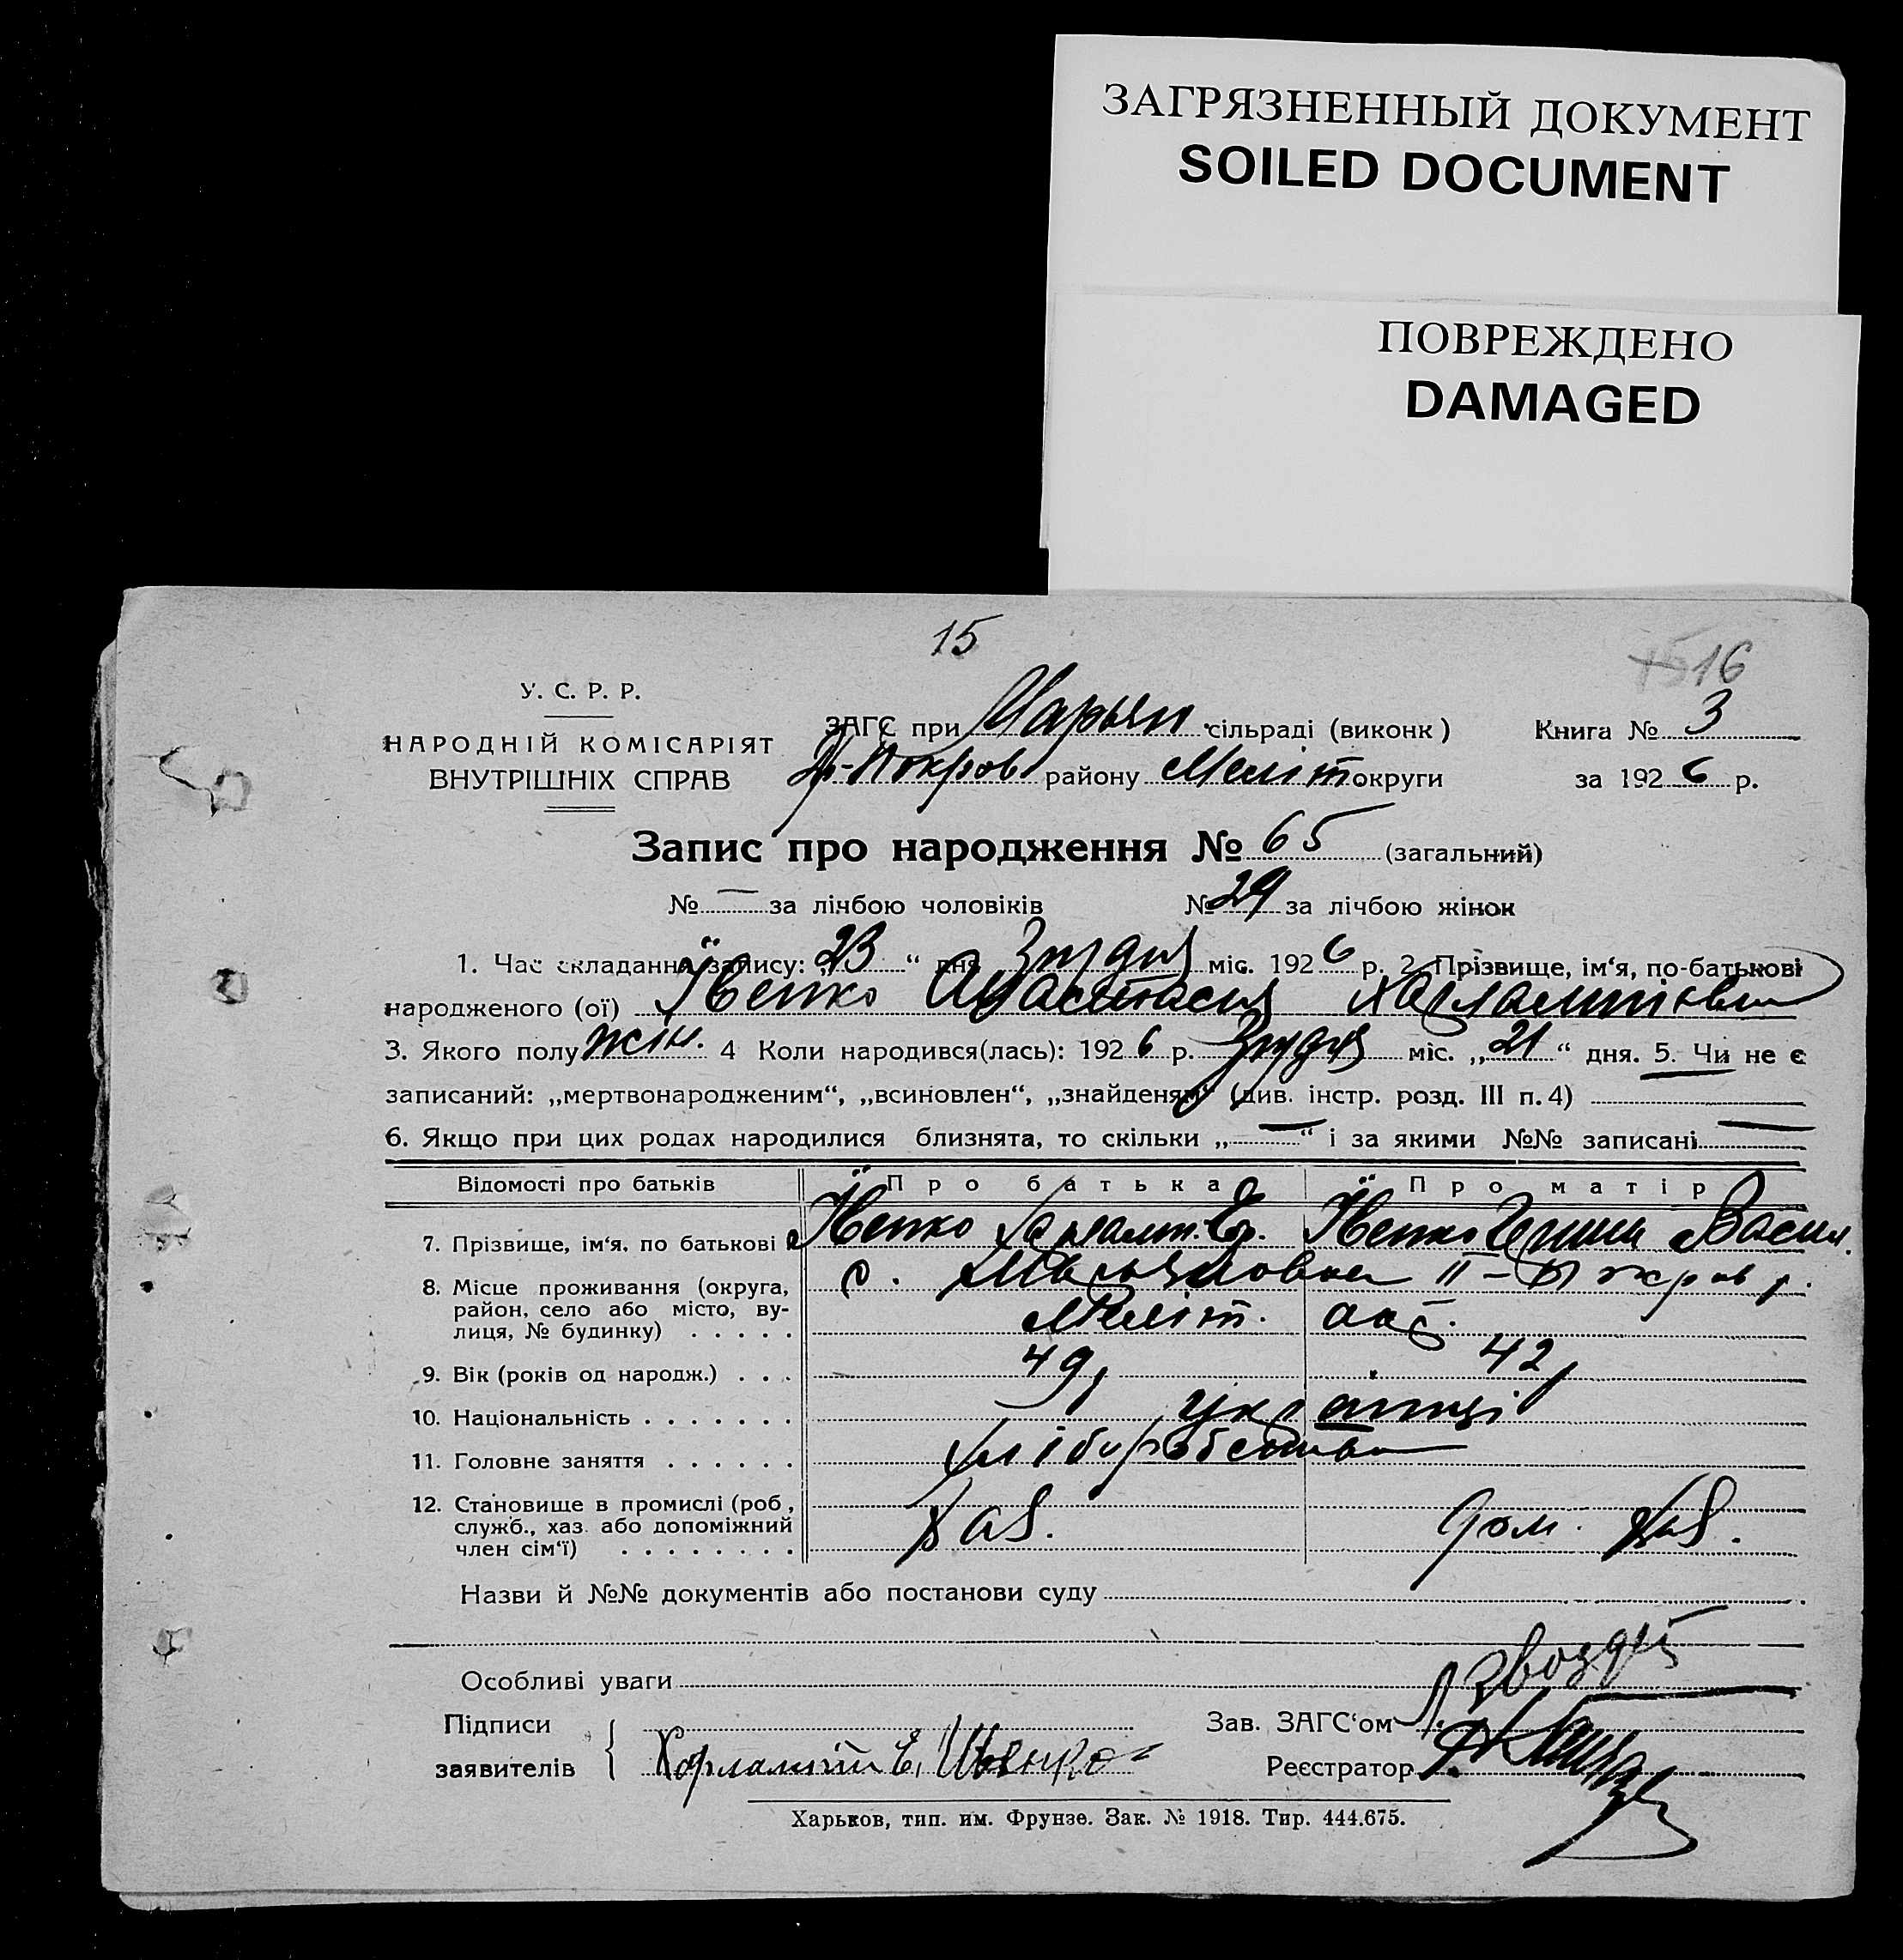 ЗАГРЯЗНЕННЫЙ ДОКУМЕНТ
SOILED DOCUMENT
ПОВРЕЖДЕНО
DAMAGED
15
16
У. С. Р. Р.
НАРОДНІЙ КОМІСАРІЯТ
ВНУТРІШНІХ СПРАВ
ЗАГС при Марьян сільраді (виконк) Книга № 3
Покров району Меліт округи за 1926 р.
Запис про народження № 65 (загальний)
№ — за лічбою чоловіків № 29 за лічбою жінок
1. Час складання запису: „23“ дня Грудня міс. 1926 р. 2. Прізвище, ім‘я, по-батькові
народженого (ої) Івенко Анастасія Харлампіївна
3. Якого полу жін. 4 Коли народився(лась): 1926 р. Грудня міс. „21“ дня. 5. Чи не є
записаний: „мертвонародженим“, „всиновлен“, „знайденям“ (див. інстр. розд. III п. 4)
6. Якщо при цих родах народилися близнята, то скільки „—“ і за якими №№ записані —
Відомості про батьків Про батька Про матір
7. Прізвище, ім‘я. по батькові Івенко Харламп. Івенко Васил.
8. Місце проживання (округа, с. II-Покров р.
район, село або місто, ву-
лиця, № будинку) . . . . . Меліт. окр.
9. Вік (років од народж.) . . . 49, 42,
10. Національність . . . . . . . українці
11. Головне заняття . . . . . . хліборобство
12. Становище в промислі (роб.,
служб., хаз. або допоміжний Хаз. дом. хаз.
член сім‘ї) . . . . . . . .
Назви й №№ документів або постанови суду
Особливі уваги
Підписи Зав. ЗАГС‘ом
заявителів Харлампий Е. Ивенко Реєстратор
Харьков, тип. им. Фрунзе. Зак. № 1918. Тир. 444.675.